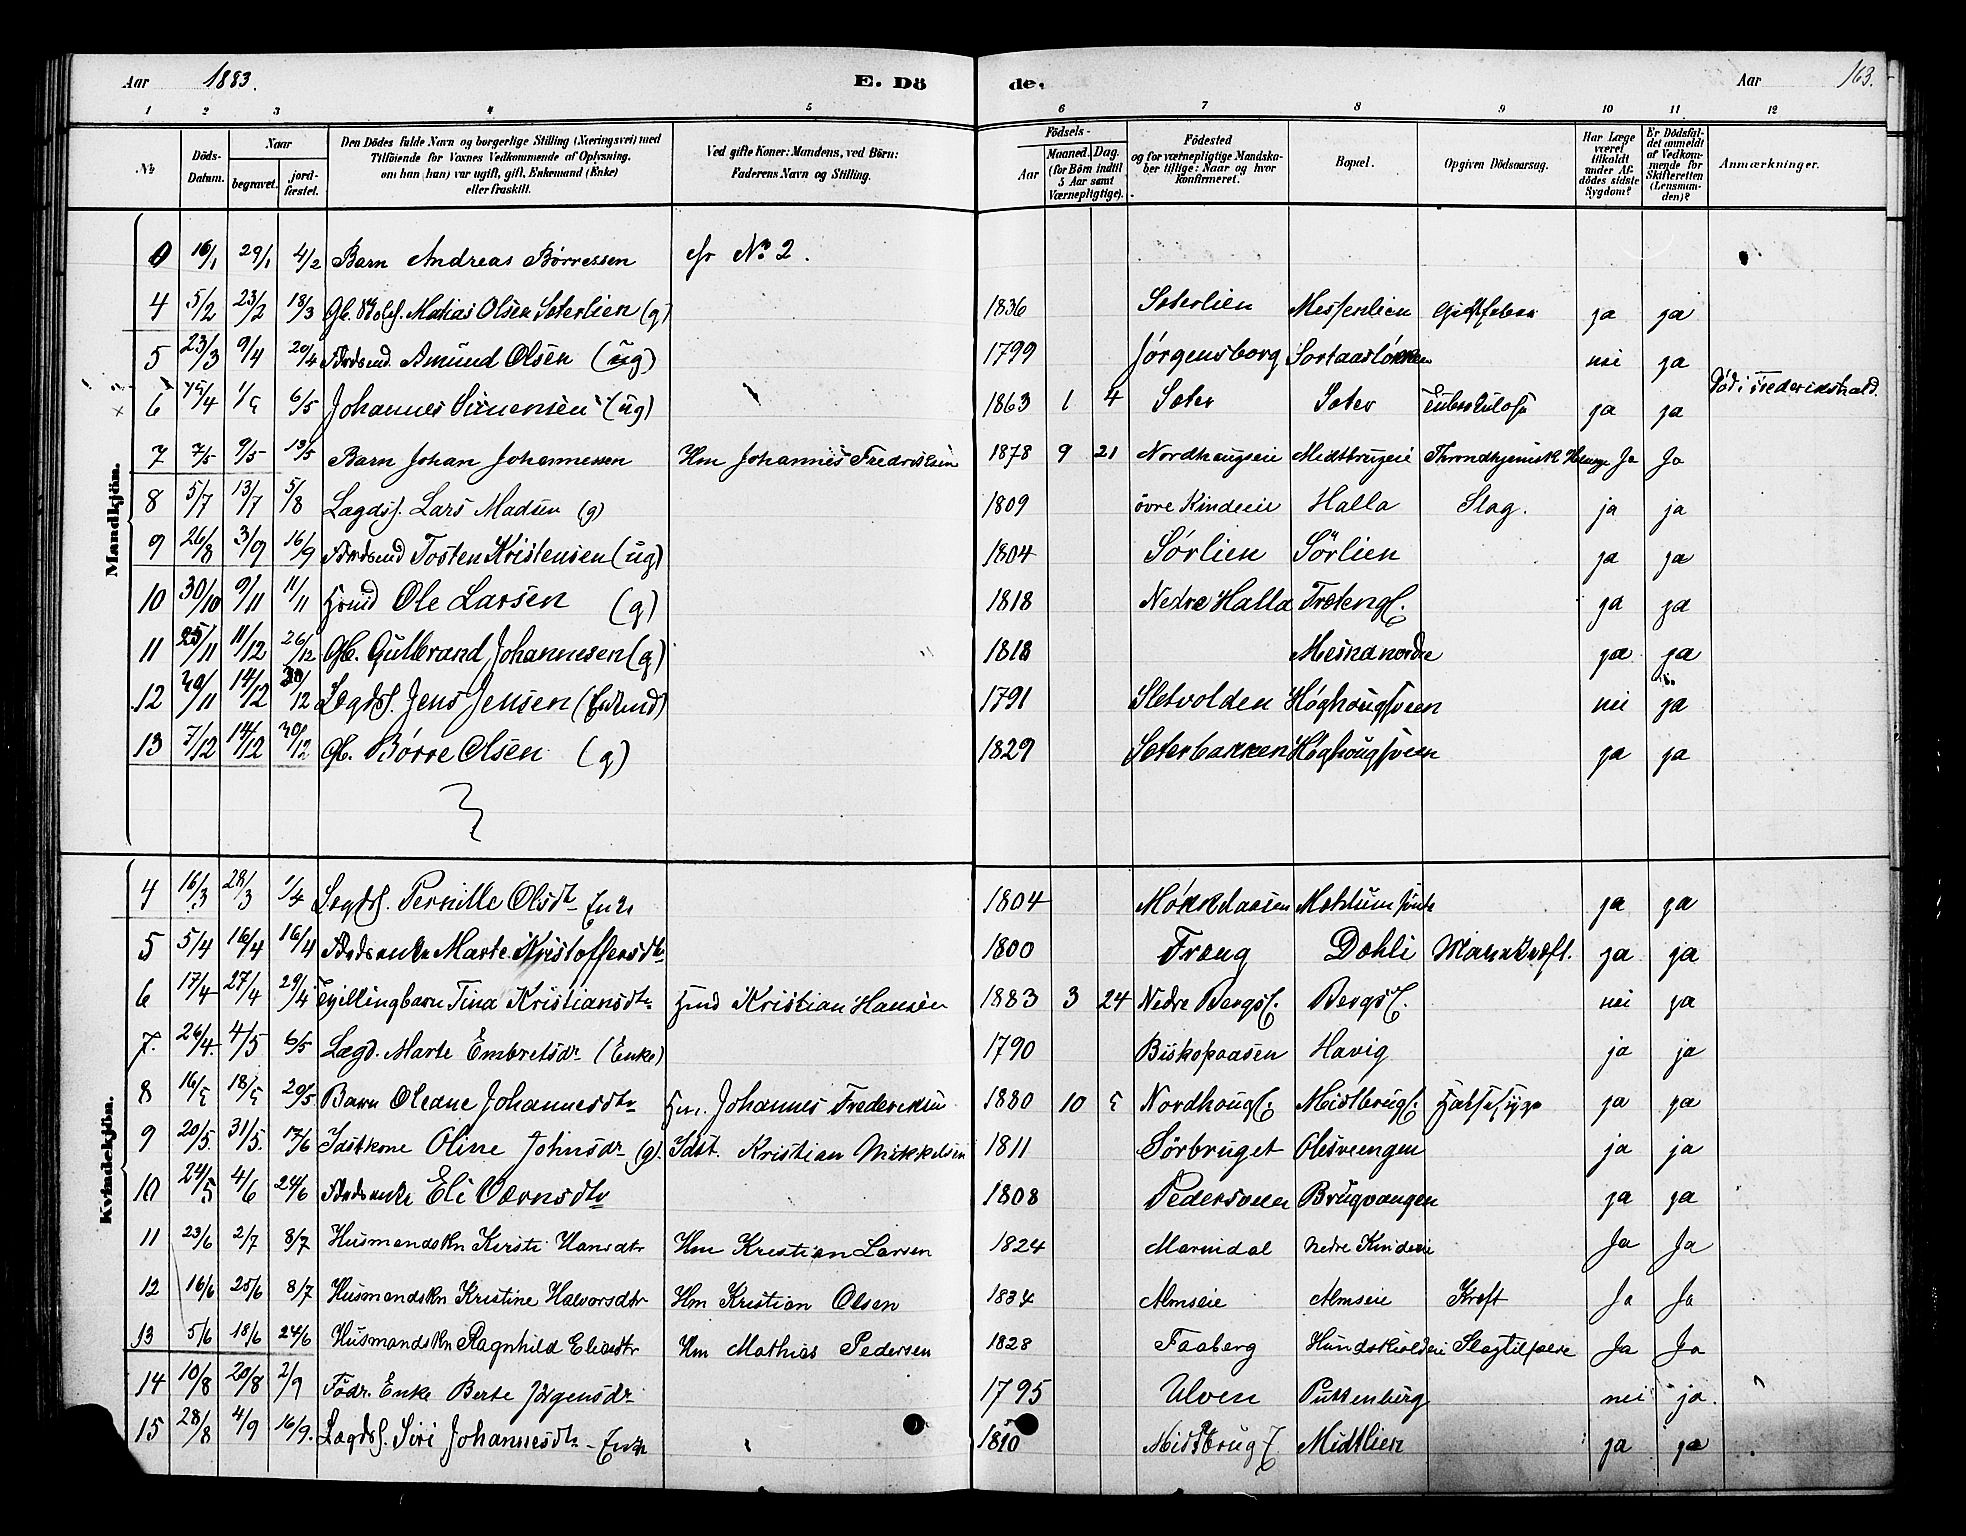 Aar 1883. E. Dö de. Aar 163.
1 2 3 4 5 6 7 8 9 10 11 12
No Döds-Datum. Naar begravet. jord-fæstet. Den Dödes fulde Navn og borgerlige Stilling (Næringsvei) med Tilföiende for Voxnes Vedkommende af Oplysning, om han (hun) var ugift, gift, Enkemand (Enke) eller fraskilt. Ved gifte Koner: Mandens, ved Börn: Faderens Navn og Stilling. Födsels- Aar Maaned. Dag. (for Börn indtil 5 Aar samt Værnepligtige). Födested og for værnepligtige Mandska-ber tillige: Naar og hvor konfirmeret. Bopæl. Opgiven Dödsaarsag. Har Læge været tilkaldt under Af-dödes sidste Sygdom? Er Dödsfal-det anmeldt af Vedkom-mende for Skifteretten (Lensman-den)? Anmærkninger.
Mandkjön.
0 16/1 29/1 4/2 Barn Andreas Børressen cfr No 2.
4 5/2 23/2 18/3 Gb. Matias Olsen Sæterlien (g) 1836 Sæterlien Messenlien Gigtfeber ja ja
5 23/3 9/4 20/4 Amund Olsen (ug) 1799 Jørgensborg Sortaasløkken nei ja
6 15/4 1/5 6/5 Johannes Simensen (ug) 1863 1 4 Sæter Sæter Tuberkulose ja ja Död i Frederikshald.
7 7/5 9/5 13/5 Barn Johan Johannessen Hm Johannes Fredriksen 1878 9 21 Nordhaugseie Midtbrugeie Ja Ja
8 5/7 13/7 5/8 Lægdsl. Lars Madsen (g) 1809 övre Kindeeie Halla Slag. ja ja
9 26/8 3/9 16/9 Tosten Kristensen (ug) 1804 Sørlien Sörlien ja ja
10 30/10 9/11 11/11 Hsmd Ole Larsen (g) 1818 Nedre Halla ja ja
11 25/11 11/12 26/12 Gb. Gulbrand Johannesen (g) 1818 Mesna nordre ja ja
12 30/11 14/12 30/12 Lægdsl. Jens Jensen (Enkmd) 1791 Sletvolden Høghougsveen nei ja
13 7/12 14/12 30/12 Gb. Børre Olsen (g) 1829 Sæterbakken Høghougsveen ja ja
Kvindekjön.
4 16/3 28/3 1/4 Lægdsl. Pernille Olsdtr Enke 1804 ja ja
5 5/4 16/4 16/4 Marte Kristoffersdtr 1800 Træng Dæhli Mavekræft. ja ja
6 17/4 27/4 29/4 Tvillingbarn Tina Kristiansdtr Hsmd Kristian Hansen 1883 3 24 Nedre Bergsl. Bergsl. nei ja
7. 26/4. 4/5 6/5 Lægd. Marte Embretsdr (Enke) 1790 Biskopaasen Havig ja ja
8 16/5 18/5 20/5 Barn Oleane Johannesdtr Hsm. Johannes Frederiksen 1880 10 5 Nordhougsl. Midtbrugsl. Halssyge ja ja
9 20/5. 31/5. 17/6 Idstkone Oline Johnsdr (g). Idst. Kristian Mikkelsen 1811 Sørbruget Olesveengen ja ja
10 24/5 4/6 24/6 Eli 1808 Pedersveen Brugvangen ja ja
11 23/6 2/7 8/7 Husmandskn Kersti Hansdtr Hm Kristian Larsen 1824 Marindal nedre Kindeeie Ja Ja
12 16/6 25/6 8/7 Husmandskn Kristine Halvorsdtr Hm Kristian Olsen 1834 Almseie Almseie Kræft Ja Ja
13 5/6 18/6 24/6 Husmandskn Ragnhild Eliasdtr Hm Mathias Pedersen 1828 Faaberg Slagtilfælde Ja Ja
14 10/8 20/8 2/9 Födr. Enke Berte Jörgensdr 1795 Ulven Puttenberg nei ja.
15 28/8 4/9 16/9. Lægdsl. Siri Johannesdtr - Enke 1810 Midtlien ja ja